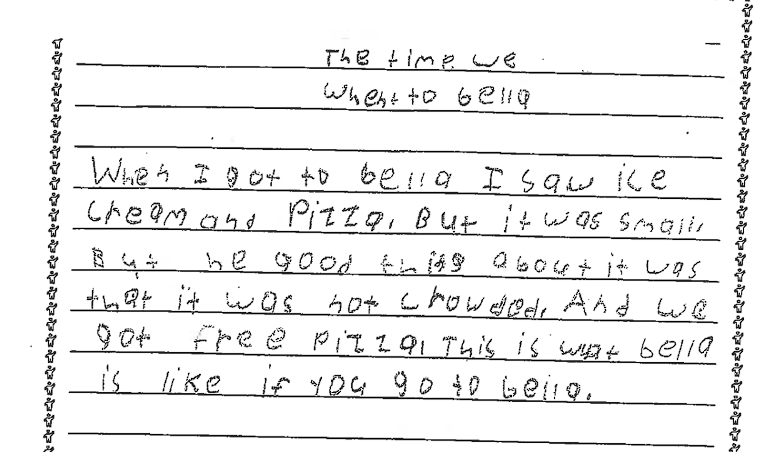 The time we
Whent to bella
When I got to bella I saw ice
cream and Pizza. But it was small.
But he good thing about it was
that it was not crowded. And we
got free pizza. This is what bella
is like if you go to bella.